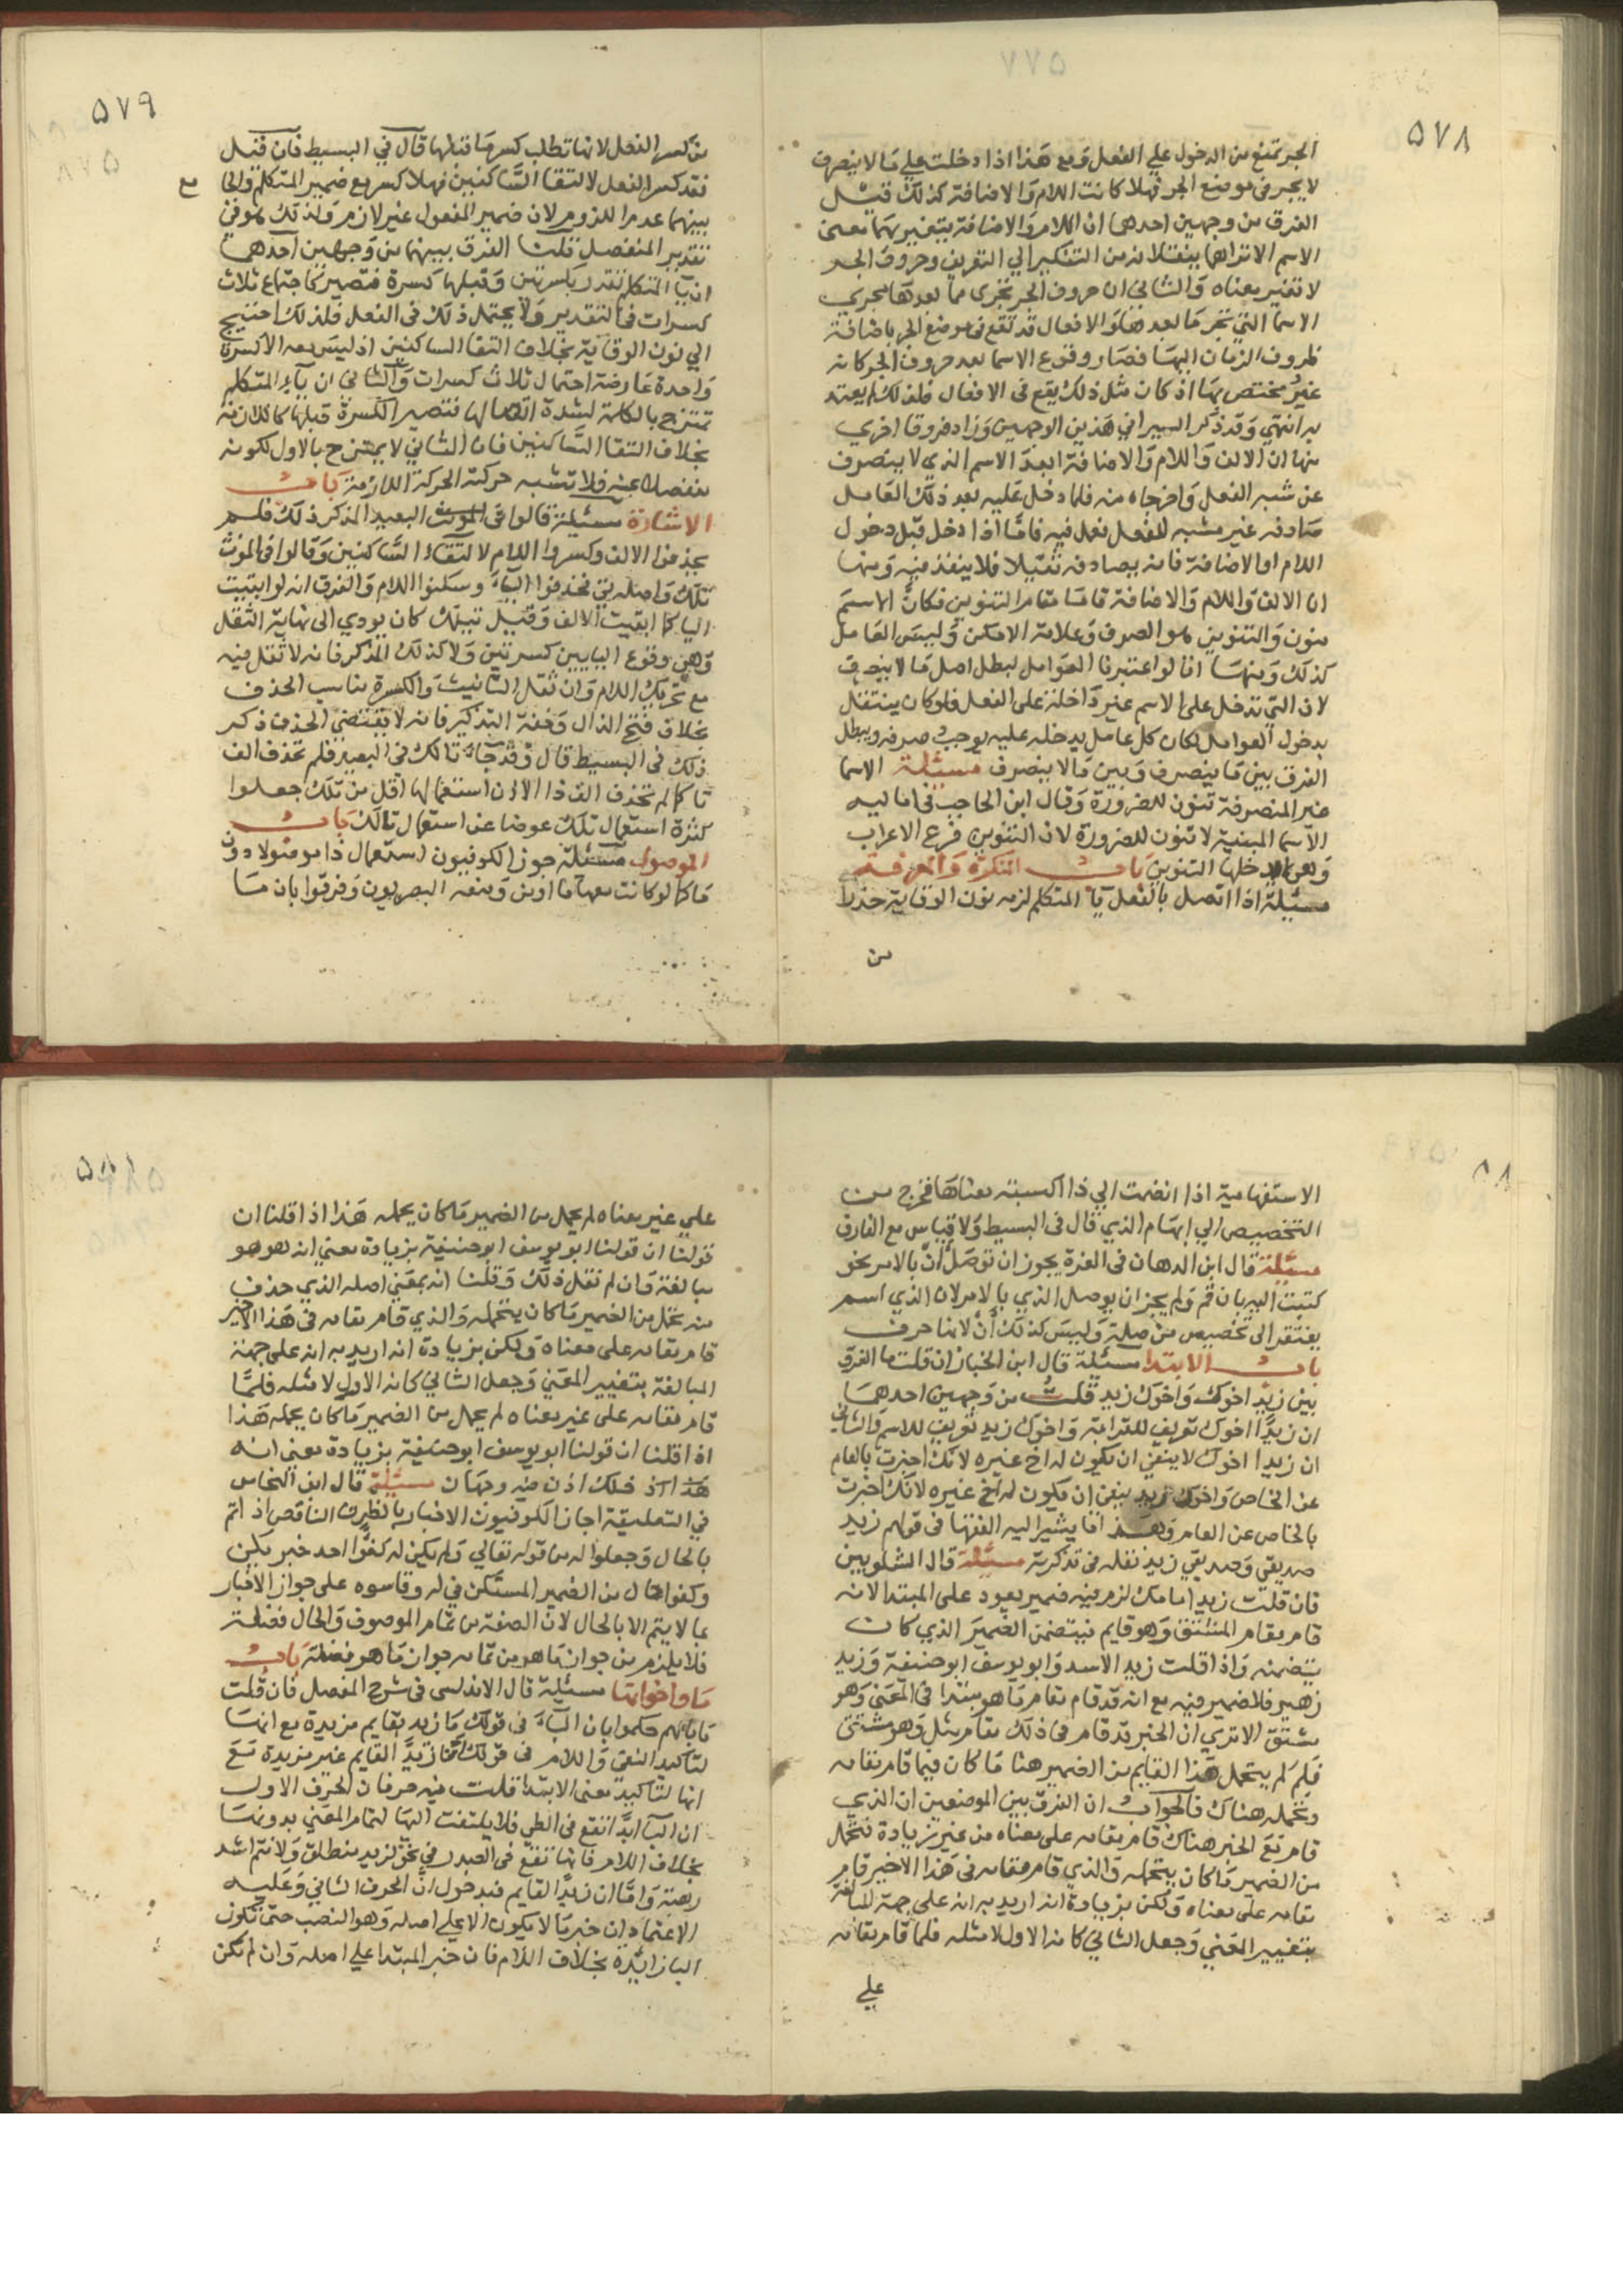 ٥٧٨
الجر تمتنع من الدخول علي الفعل ومع هذا اذا دخلت علي ما لا ينصرف
لا يجر في موضع الجر فهلا كانت اللام والاضافة كذلك قيل
الفرق من وجهين احدهما ان اللام والاضافة يتغير بهما معني
الاسم الا تراهما ينقلانه من التنكير الي التعريف وحروف الجر
لا تغير معناه والثاني ان حروف الجر تجري مما بعدها مجري
الاسما التي تجر ما بعدها والافعال قد تقع في موضع الجر باضافة
ظروف الزمان اليها فصار وقوع الاسما بعد حروف الجر كانه
غير مختص بها اذ كان مثل ذلك يقع في الافعال فلذلك لم يعتد
به انتهي وقد ذكر السيرافي هذين الوجهين وزاد فروقا اخري
منها ان الالف واللام والاضافة ابعدا الاسم الذي لا ينصرف
عن شبه الفعل واخرجاه منه فلما دخل عليه بعد ذلك العامل
صادفه غير مشبه للفعل فعمل فيه فاما اذا دخل قبل دخول
اللام او الاضافة فانه يصادفه ثقيلا فلا ينفذ فيه ومنها
ان الالف واللام والاضافة قاما مقام التنوين فكان الاسم
منون والتنوين هو الصرف وعلامة الامكن وليس العامل
كذلك ومنها انا لو اعتبرنا العوامل لبطل اصل ما لا ينصرف
لان التي تدخل على الاسم غير داخلة على الفعل فلو كان ينتقل
بدخول العوامل لكان كل عامل يدخله عليه يوجب صرفه ويبطل
الفرق بين ما ينصرف وبين ما لا ينصرف مسئلة الاسما
غير المنصرفة تنون للضرورة وقال ابن الحاجب في اماليه
الاسما المبنية لا تنون للضرورة لان التنوين فرع الاعراب
التنوين باب النكرة والمعرفة
مسئلة اذا اتصل بالفعل يآ المتكلم لزمه نون الوقاية حذرا
من
٥٧٩
من كسر الفعل لانها تطلب كسر ما قبلها قال في البسيط فان قيل
فقد كسر الفعل لالتقا الساكنين فهلا كسر مع ضمير المتكلم والجا
مع
بينهما عدم اللزوم لان ضمير المفعول غير لازم ولذلك هو في
تقدير المنفصل قلت الفرق بينهما من وجهين احدهما
ان يآ المتكلم تقدر بكسرتين وقبلها كسرة فتصير كاجتماع ثلاث
كسرات في التقدير ولا يحتمل ذلك في الفعل فلذلك احتيج
الي نون الوقاية بخلاف التقا الساكنين اذ ليس معه الا كسرة
واحدة عارضة احتمال ثلاث كسرات والثاني ان يآء المتكلم
تمتزج بالكلمة لشدة اتصالها فتصير الكسرة قبلها كاللازمة
بخلاف التقا الساكنين فان الثاني لا يمتزج بالاول لكونه
منفصلا عنه فلا تشبه حركته الحركة اللازمة باب
الاشارة مسئلة قالوا في المونث البعيد المذكر ذلك فلم
يحذفوا الالف وكسروا اللام لالتقاء الساكنين وقالوا في المونث
تلك واصله تي فحذفوا الياء وسكنوا اللام والفرق انه لو ابقيت
اليا كما ابقيت الالف وقيل تيلك كان يودي الى نهاية الثقل
وهي وقوع اليا بين كسرتين ولا كذلك المذكر فانه لا ثقل فيه
مع تحريك اللام وان ثقل التانيث والكسرة يناسب الحذف
بخلاف فتح الذال وخفة التذكير فانه لا يقتضي الحذف ذكر
ذلك في البسيط قال وقد جآء تالك في البعيد فلم تحذف الف
تا كما لم تحذف الف ذا الا ان استعمالها اقل من تلك جعلوا
كثرة استعمال تلك عوضا عن استعمال تالك باب
الموصول مسئلة جوز الكوفيون استعمال ذا موصولا دون
ما كما لو كانت معها ما او من ومنعه البصريون وفرقوا بان ما
٥٨
الاستفهامية اذا انضمت الي ذا اكسبته معناها فخرج من
التخصيص الي ابهام الذي قال في البسيط ولا قياس مع الفارق
مسئلة قال ابن الدهان في الغرة يجوز ان توصل ان بالامر نحو
كتبت اليه بان قم ولم يجز ان يوصل الذي بالامر لان الذي اسم
يفتقر الى تخصيص من صلة وليس كذلك ان لانها حرف
باب الابتدا مسئلة قال ابن الخباز ان قلت ما الفرق
بين زيد اخوك واخوك زيد قلت من وجهين احدهما
ان زيدا اخوك تعريف للقرابة واخوك زيد تعريف للاسم والثاني
ان زيدا اخوك لا ينفي ان يكون له اخ غيره لانك اخبرت بالعام
عن الخاص واخوك زيد ينفي ان يكون له اخ غيره لانك اخبرت
بالخاص عن العام وهذا ما يشير اليه الفقها في قولهم زيد
صديقي وصديقي زيد نقله في تذكرته مسئلة قال الشلوبين
فان قلت زيد امامك لزم فيه ضمير يعود على المبتدا لانه
قام مقام المشتق وهو قايم فيتضمن الضمير الذي كان
يتضمنه واذا قلت زيد الاسد وابو يوسف ابو حنيفة وزيد
زهير فلا ضمير فيه مع انه قد قام مقام ما هو مبتدا في المعني وهو
مشتق الا تري ان الخبر قد قام في ذلك مقام مثل وهو مشتق
فلم لم يتحمل هذا القايم من الضمير هنا ما كان فيما قام مقامه
يتحمله هناك فالجواب ان الفرق بين الموضعين ان الذي
قام مع الخبر هناك قام مقامه على معناه من غير زيادة فتحمل
من الضمير ما كان يتحمله والذي قام مقامه في هذا الاخير قام
مقامه على معناه ولكن بزيادة انه اريد به انه علي جهة المبالغة
بتغيير المعني وجعل الثاني كانه الاول لا مثله فلما قام مقامه
علي
علي غير معناه لم يحمل من الضمير ما كان يحمله هذا اذا قلنا ان
قولنا ان قولنا ابو يوسف ابو حنيفة بزيادة معني انه هو هو
مبالغة وان لم نقل ذلك وقلنا انه بمعني اصله الذي حذف
منه تحمل من الضمير ما كان يتحمله والذي قام مقامه في هذا الاخير
قام مقامه على معناه ولكن بزيادة انه اريد به انه على جهة
المبالغة بتغيير المعني وجعل الثاني كانه الاول لا مثله فلما
قام مقامه على غير معناه لم يحمل من الضمير ما كان يحمله هذا
اذا قلنا ان قولنا ابو يوسف ابو حنيفة بزيادة معني انه
فلك اذن فيه وجهان مسئلة قال ابن النحاس
في التعليقة اجاز الكوفيون الاخبار بالظرف الناقص اذا تم
بالحال وجعلوا له من قوله تعالي ولم يكن له كفوا احد خبر يكن
وكفوا حال من الضمير المستكن في له وقاسوه على جواز الاخبار
بما لا يتم الا بالحال لان الصفة من تمام الموصوف والحال فضلة
فلا يلزم من جواز ما هو من تمامه جواز ما هو فضلة باب
ما واخواتها مسئلة قال الاندلسي في شرح المفصل فان قلت
ما بالهم حكموا بان البآء في قولك ما زيد بقايم مزيدة مع انها
لتاكيد النفي واللام في قولك ان زيدا القايم غير مزيدة مع
انها لتاكيد معنى الابتدا قلت فيه حرفان الحرف الاول
ان البآ ابدا تقع في الطي فلا يلتفت اليها لتمام المعني بدونها
بخلاف اللام فانها تقع في الصدر في نحو لزيد منطلق ولانتم اشد
رهبة واما ان زيدا القايم فبدخول ان الحرف الثاني وعليه
الاعتماد ان خبر ما لا يكون الا علي اصله وهو النصب حتى تكون
البا زائدة بخلاف اللام فان خبر المبتدا علي اصله وان لم تكن